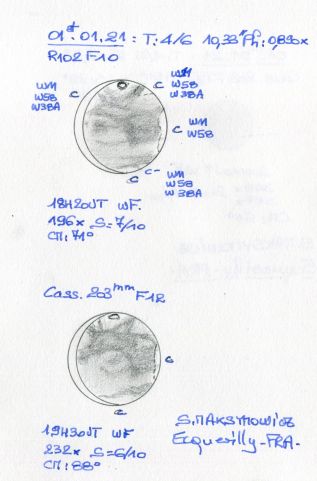 01st.01.21 : T:4/6 10,33" Ph: 0,896x
R102 F10
WM
W58
W38A
C
C
W11
W58
W38A
C W11
W58
C C-
W11
W58
W38A
18H20UT WF.
196x S=7/10
CM: 71°
Cass. 203mm F12
C
C
19H30UT WF
232x S=6/10
CM: 88°
S.MAKSYMOWICZ
Ecquevilly-FRA-